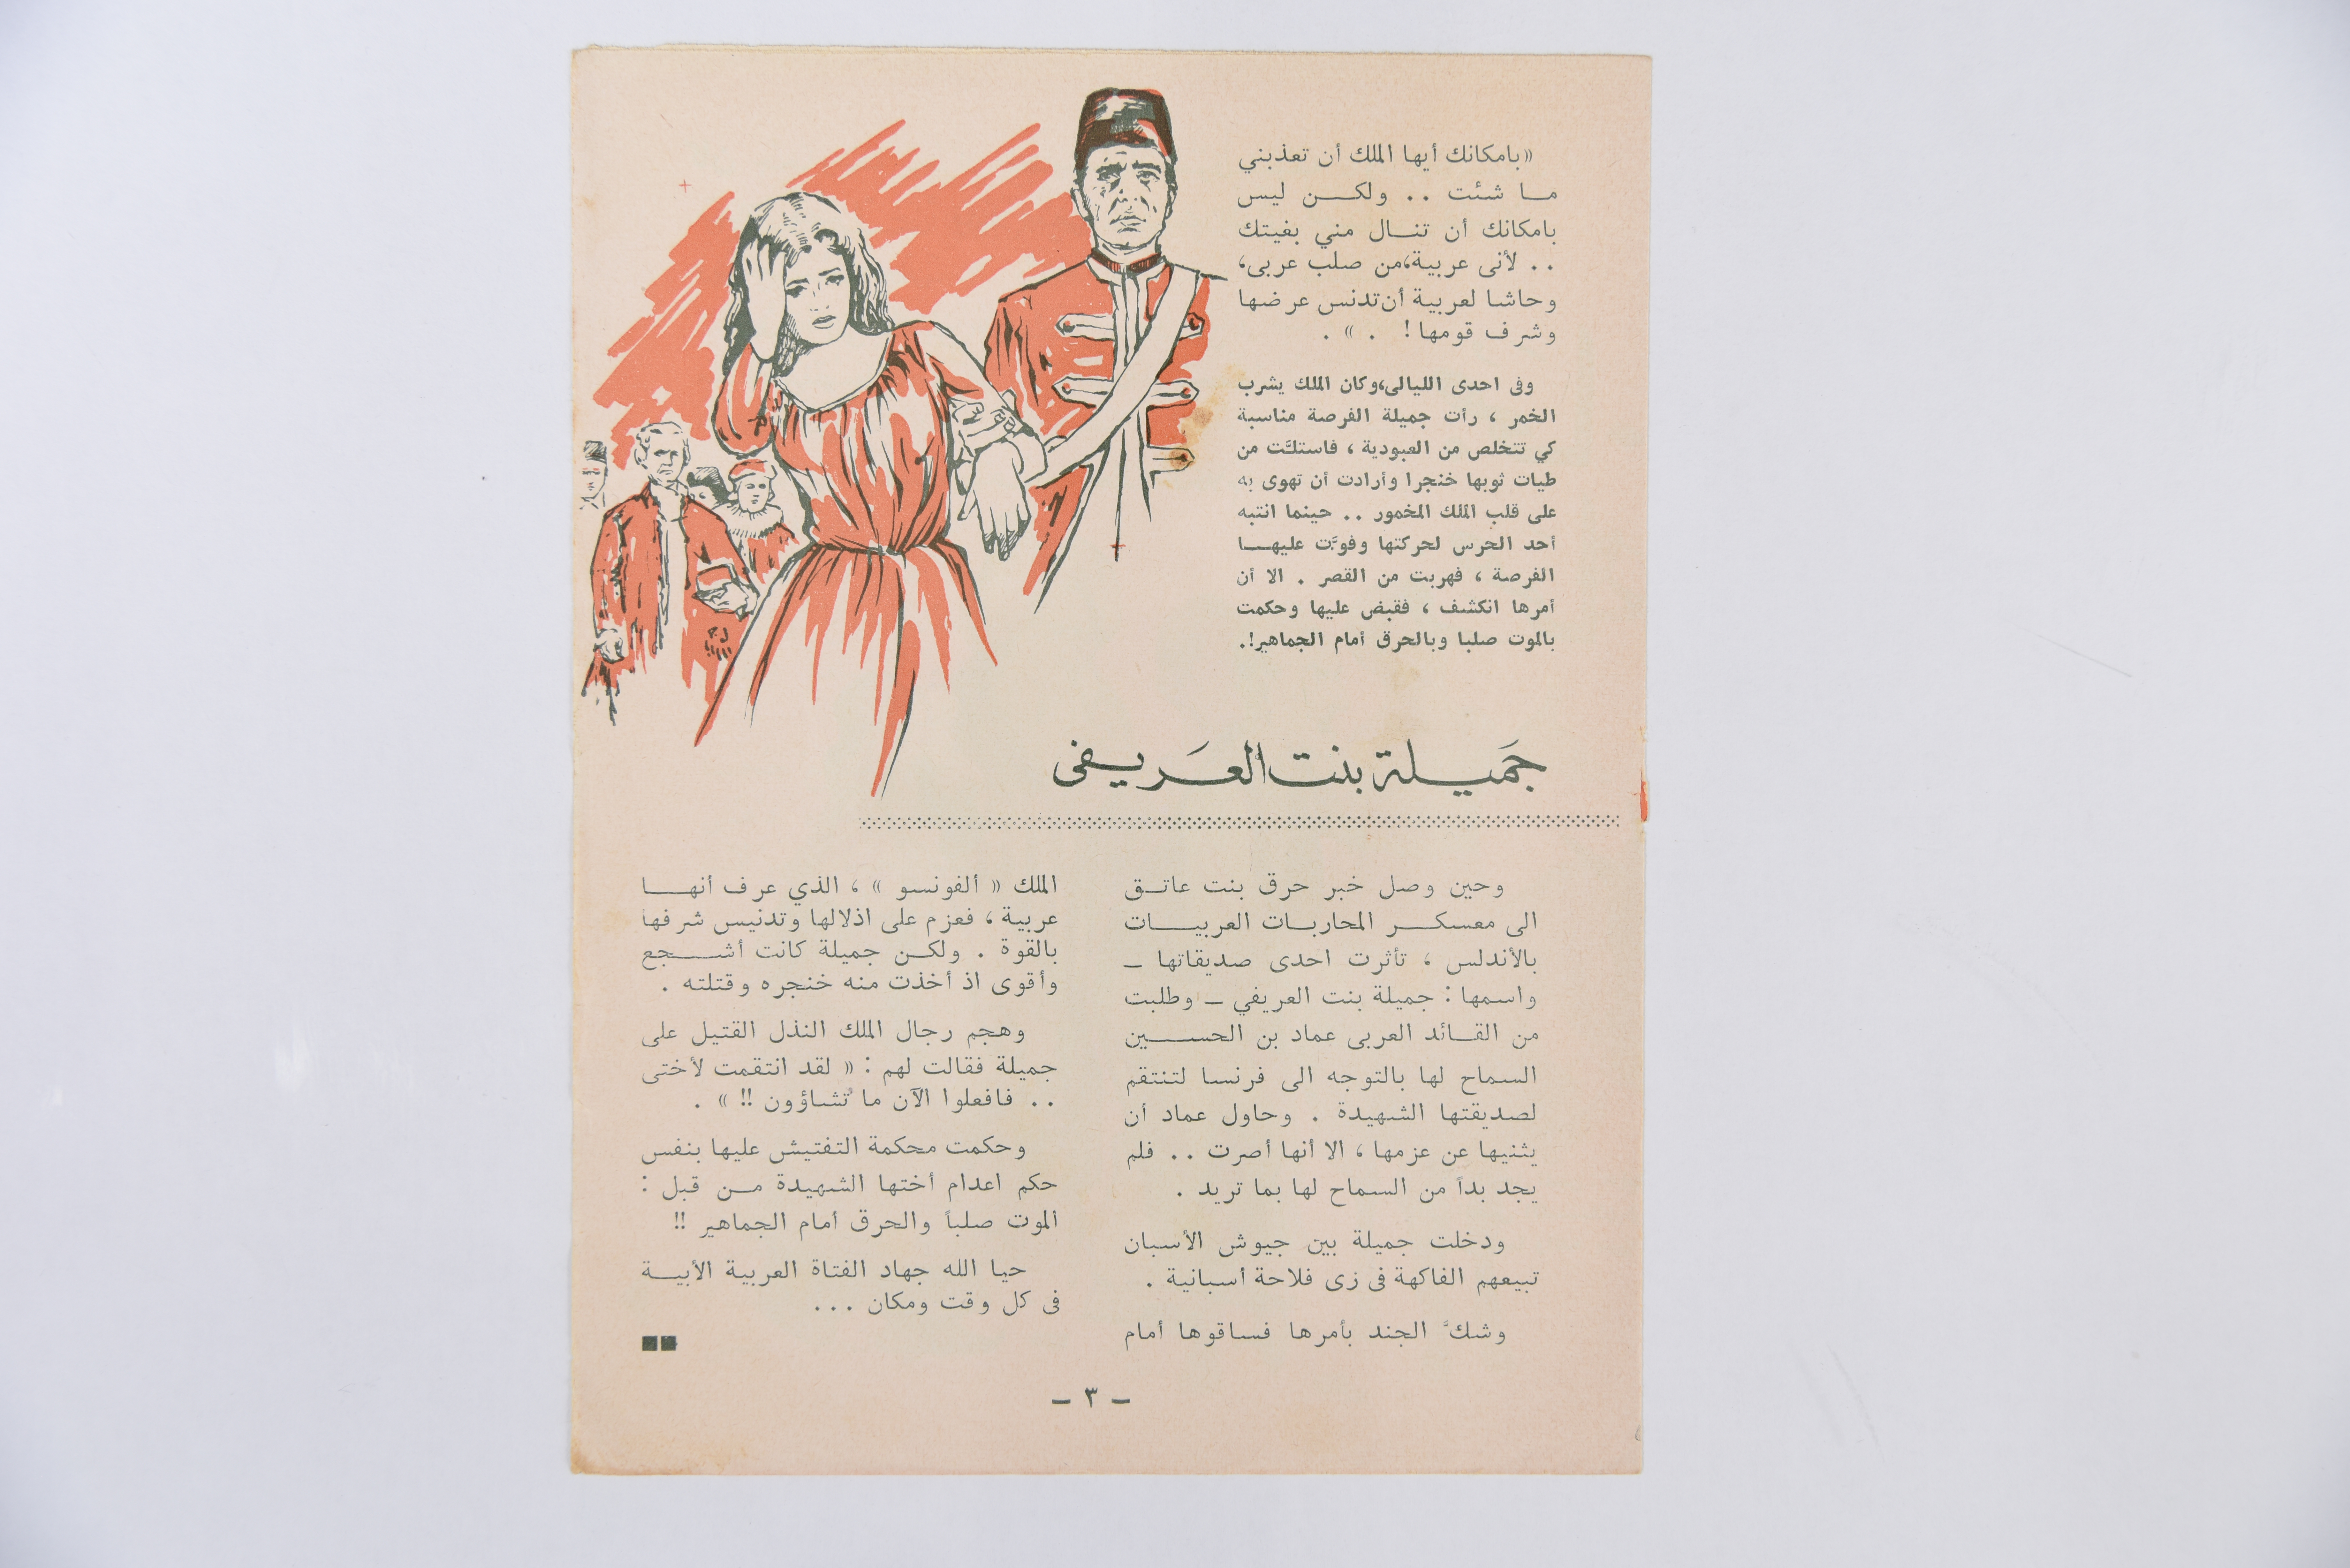 «بامكانك أيها الملك أن تعذبني
ما شئت .. ولكن ليس
بامكانك أن تنال مني بغيتك
.. لأنى عربية،من صلب عربى،
وحاشا لعربية أن تدنس عرضها
وشرف قومها! . » .
وفى احدى الليالى،وكان الملك يشرب
الخمر ، رأت جميلة الفرصة مناسبة
كي تتخلص من العبودية ، فاستلَّت من
طيات ثوبها خنجرا وأرادت أن تهوى به
على قلب الملك المخمور .. حينما انتبه
أحد الحرس لحركتها وفوَّت عليها
الفرصة ، فهربت من القصر . الا أن
أمرها انكشف ، فقبض عليها وحكمت
بالموت صلبا وبالحرق أمام الجماهير!.
جَميلة بنت العَريفى
وحين وصل خبر حرق بنت عاتق
الى معسكر المحاربات العربيات
بالأندلس ، تأثرت احدى صديقاتها –
واسمها : جميلة بنت العريفي – وطلبت
من القائد العربى عماد بن الحسين
السماح لها بالتوجه الى فرنسا لتنتقم
لصديقتها الشهيدة . وحاول عماد أن
يثنيها عن عزمها ، الا أنها أصرت .. فلم
يجد بداً من السماح لها بما تريد .
ودخلت جميلة بين جيوش الأسبان
تبيعهم الفاكهة فى زى فلاحة أسبانية .
وشكَّ الجند بأمرها فساقوها أمام
الملك « ألفونسو » ، الذي عرف أنها
عربية ، فعزم على اذلالها وتدنيس شرفها
بالقوة . ولكن جميلة كانت أشجع
وأقوى اذ أخذت منه خنجره وقتلته .
وهجم رجال الملك النذل القتيل على
جميلة فقالت لهم : « لقد انتقمت لأختى
.. فافعلوا الآن ما تشاؤون !! » .
وحكمت محكمة التفتيش عليها بنفس
حكم اعدام أختها الشهيدة من قبل :
الموت صلباً والحرق أمام الجماهير !!
حيا الله جهاد الفتاة العربية الأبية
فى كل وقت ومكان ...
– ٣ –